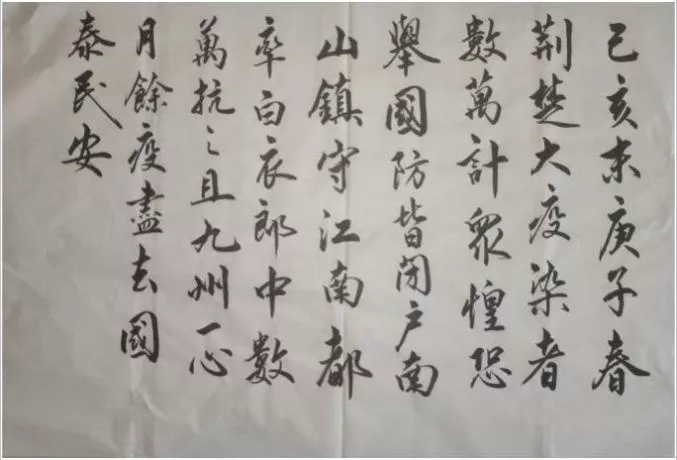 己亥末庚子春
荆楚大疫染者
數萬計眾惶恐
舉國防皆閉户南
山鎮守江南都
率白衣郎中數
萬抗之且九州一心
月餘疫盡去國
泰民安